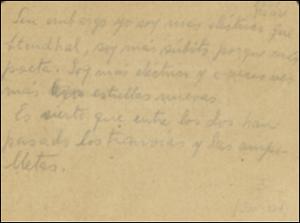 Sin embargo yo soy más eléctrico que
Stendhal, soy más súbito porque soy
poeta. Soy más eléctrico y a veces veo
más estrellas nuevas.
Es cierto que entre los dos han
pasado los tranvías y las ampo-
lletas.